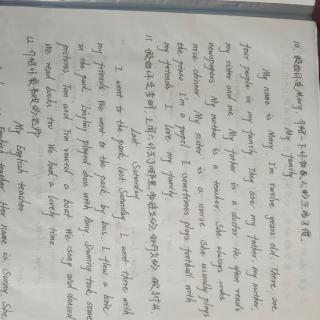 10. 假如你是Mary,介绍一下你和家人的生活习惯。
My family
My name is Mary I'm twelve years old. There are
four people in my family They are my father, my mother
my sister and me. My father is a doctor He often reads
newspapers My mother is a teacher She always cooks
nice dinner My sister is a nurse She usually plays
the piano I'm a pupil I sometimes plays football with
my friends I love my family
11 假如你是李明, 上周六
Last Saturday
I went to the park last Saturday I went there with
my friends We went to the park by bus. I flew a kite
in the park. Lingling played chess with Amy Daming took some
pictures, Tom and Tim rowed a boat. We sang and danced
We read books too We had a lovely time
12
My English teacher
English teacher Her name is Sunny. She